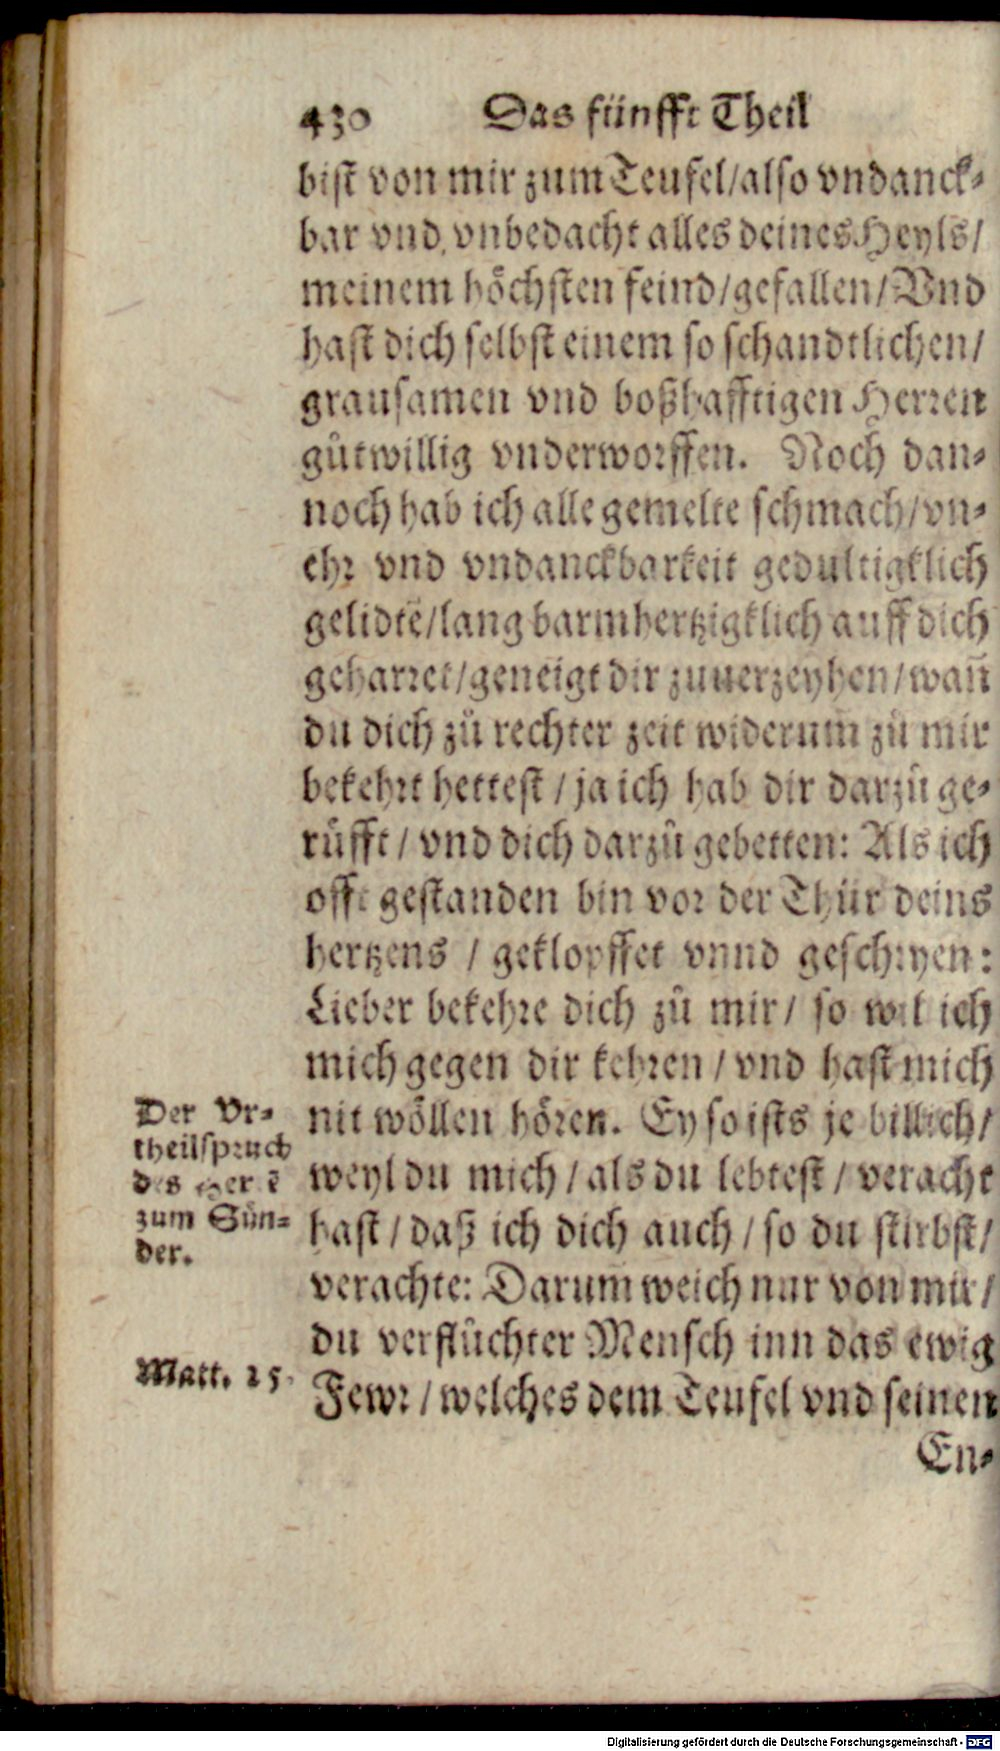 430 Das fünfft Theil
bist von mir zum Teufel/also vndanck⸗
bar vnd vnbedacht alles deines Heyls/
meinem höchsten feind/gefallen/Vnd
hast dich selbst einem so schandtlichen/
grausamen vnd boßhafftigen Herren
gůtwillig vnderworffen. Noch dan⸗
noch hab ich alle gemelte schmach/vn⸗
ehr vnd vndanckbarkeit gedultigklich
gelidtẽ/lang barmhertzigklich auff dich
geharret/geneigt dir zuuerzeyhen/wañ
du dich zů rechter zeit widerum̃ zů mir
bekehrt hettest / ja ich hab dir darzů ge⸗
růfft / vnd dich darzů gebetten: Als ich
offt gestanden bin vor der Thür deins
hertzens / geklopffet vnnd geschryen:
Lieber bekehre dich zů mir/ so wil ich
mich gegen dir kehren / vnd hast mich
nit wöllen hören. Ey so ists je billich/
weyl du mich / als du lebtest / veracht
hast / daß ich dich auch / so du stirbst/
verachte: Darum̃ weich nur von mir/
du verflůchter Mensch inn das ewig
Fewr / welches dem Teufel vnd seinen
En⸗
Der Vr⸗
theilspruch
des Herrẽ
zum Sün⸗
der.
Matt. 25.
Digitalisierung gefördert durch die Deutsche Forschungsgemeinschaft - DFG